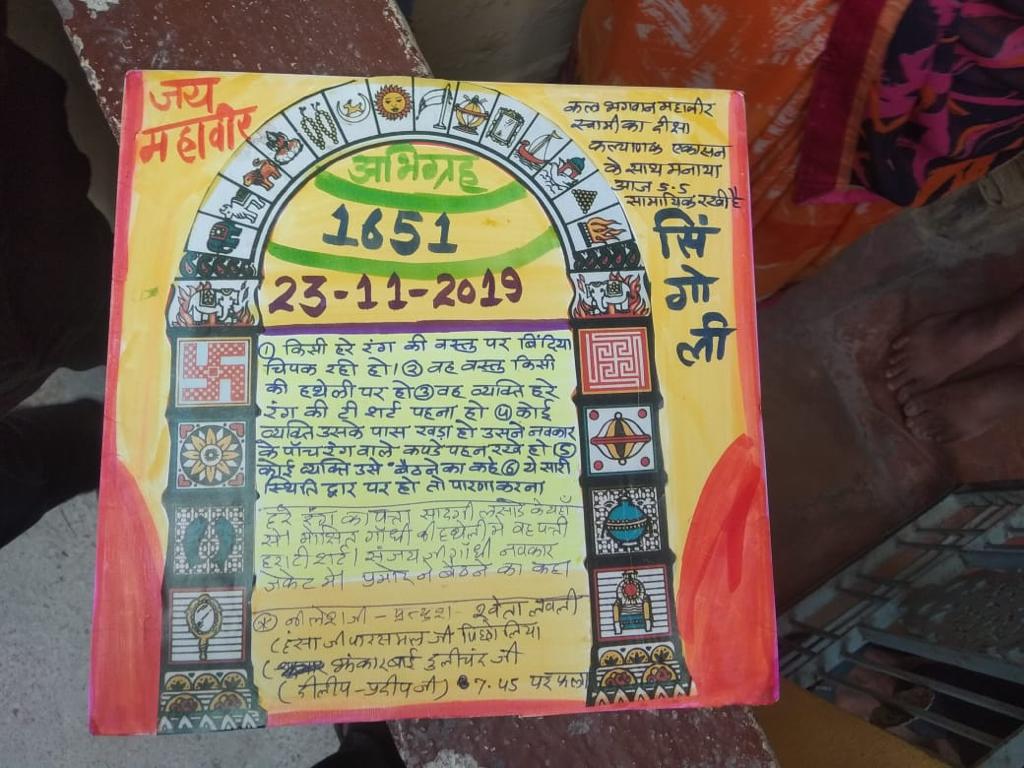 जय
महावीर
कल भगवान महावीर
स्वामी का दीक्षा
कल्याणक एकासन
के साथ मनाया
आज 5-5
सामायिक रखी है
सिं
गो
ली
अभिग्रह
1651
23-11-2019
① किसी हरे रंग की वस्तु पर बिंदिया
चिपक रही हो। ② वह वस्तु किसी
की हथेली पर हो ③ वह व्यक्ति हरे
रंग की टी शर्ट पहना हो ④ कोई
व्यक्ति उसके पास खड़ा हो उसने नवकार
के पाँच रंग वाले कपडे पहन रखे हो ⑤
कोई व्यक्ति उसे "बैठने का कहे ⑥ ये सारी
स्थिति द्वार पर हो तो पारना करना
हरे रंग का पत्ता
गाँधी की हथेली में वह पत्ती
हरा टी शर्ट। संजय जी गाँधी नवकार
जेकेट में। ने बैठने का कहा
नीलेश जी - - श्वेता
(हंसा जी पारसमल जी
झंकारबाई
(दीलीप-प्रदीप जी) 7.45 पर फला